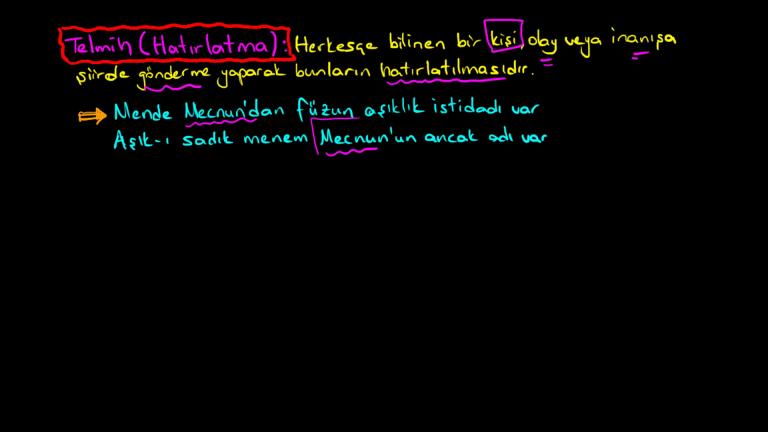 Telmih (Hatırlatma): Herkesçe bilinen bir kişi, olay veya inanışa
şiirde gönderme yaparak bunların hatırlatılmasıdır.
⇒ Mende Mecnun'dan füzun aşıklık istidadı var
Aşık-ı sadık menem Mecnun'un ancak adı var